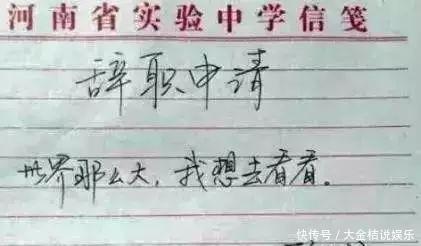 河南省实验中学信笺
辞职申请
世界那么大，我想去看看。
快传号/大金桔说娱乐